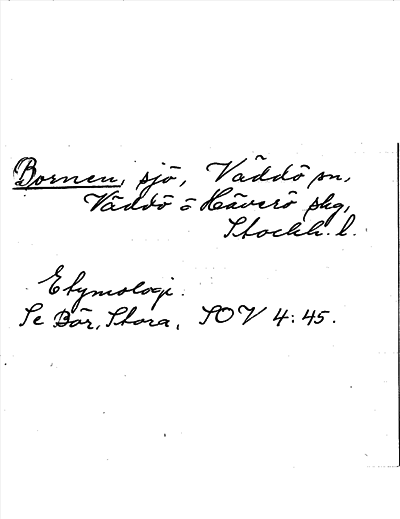 Bornen, sjö, Väddö sn,
Väddö o Häverö skg,
Stockh. l.
Etymologi.
Se Bör, Stora, SOV 4:45.